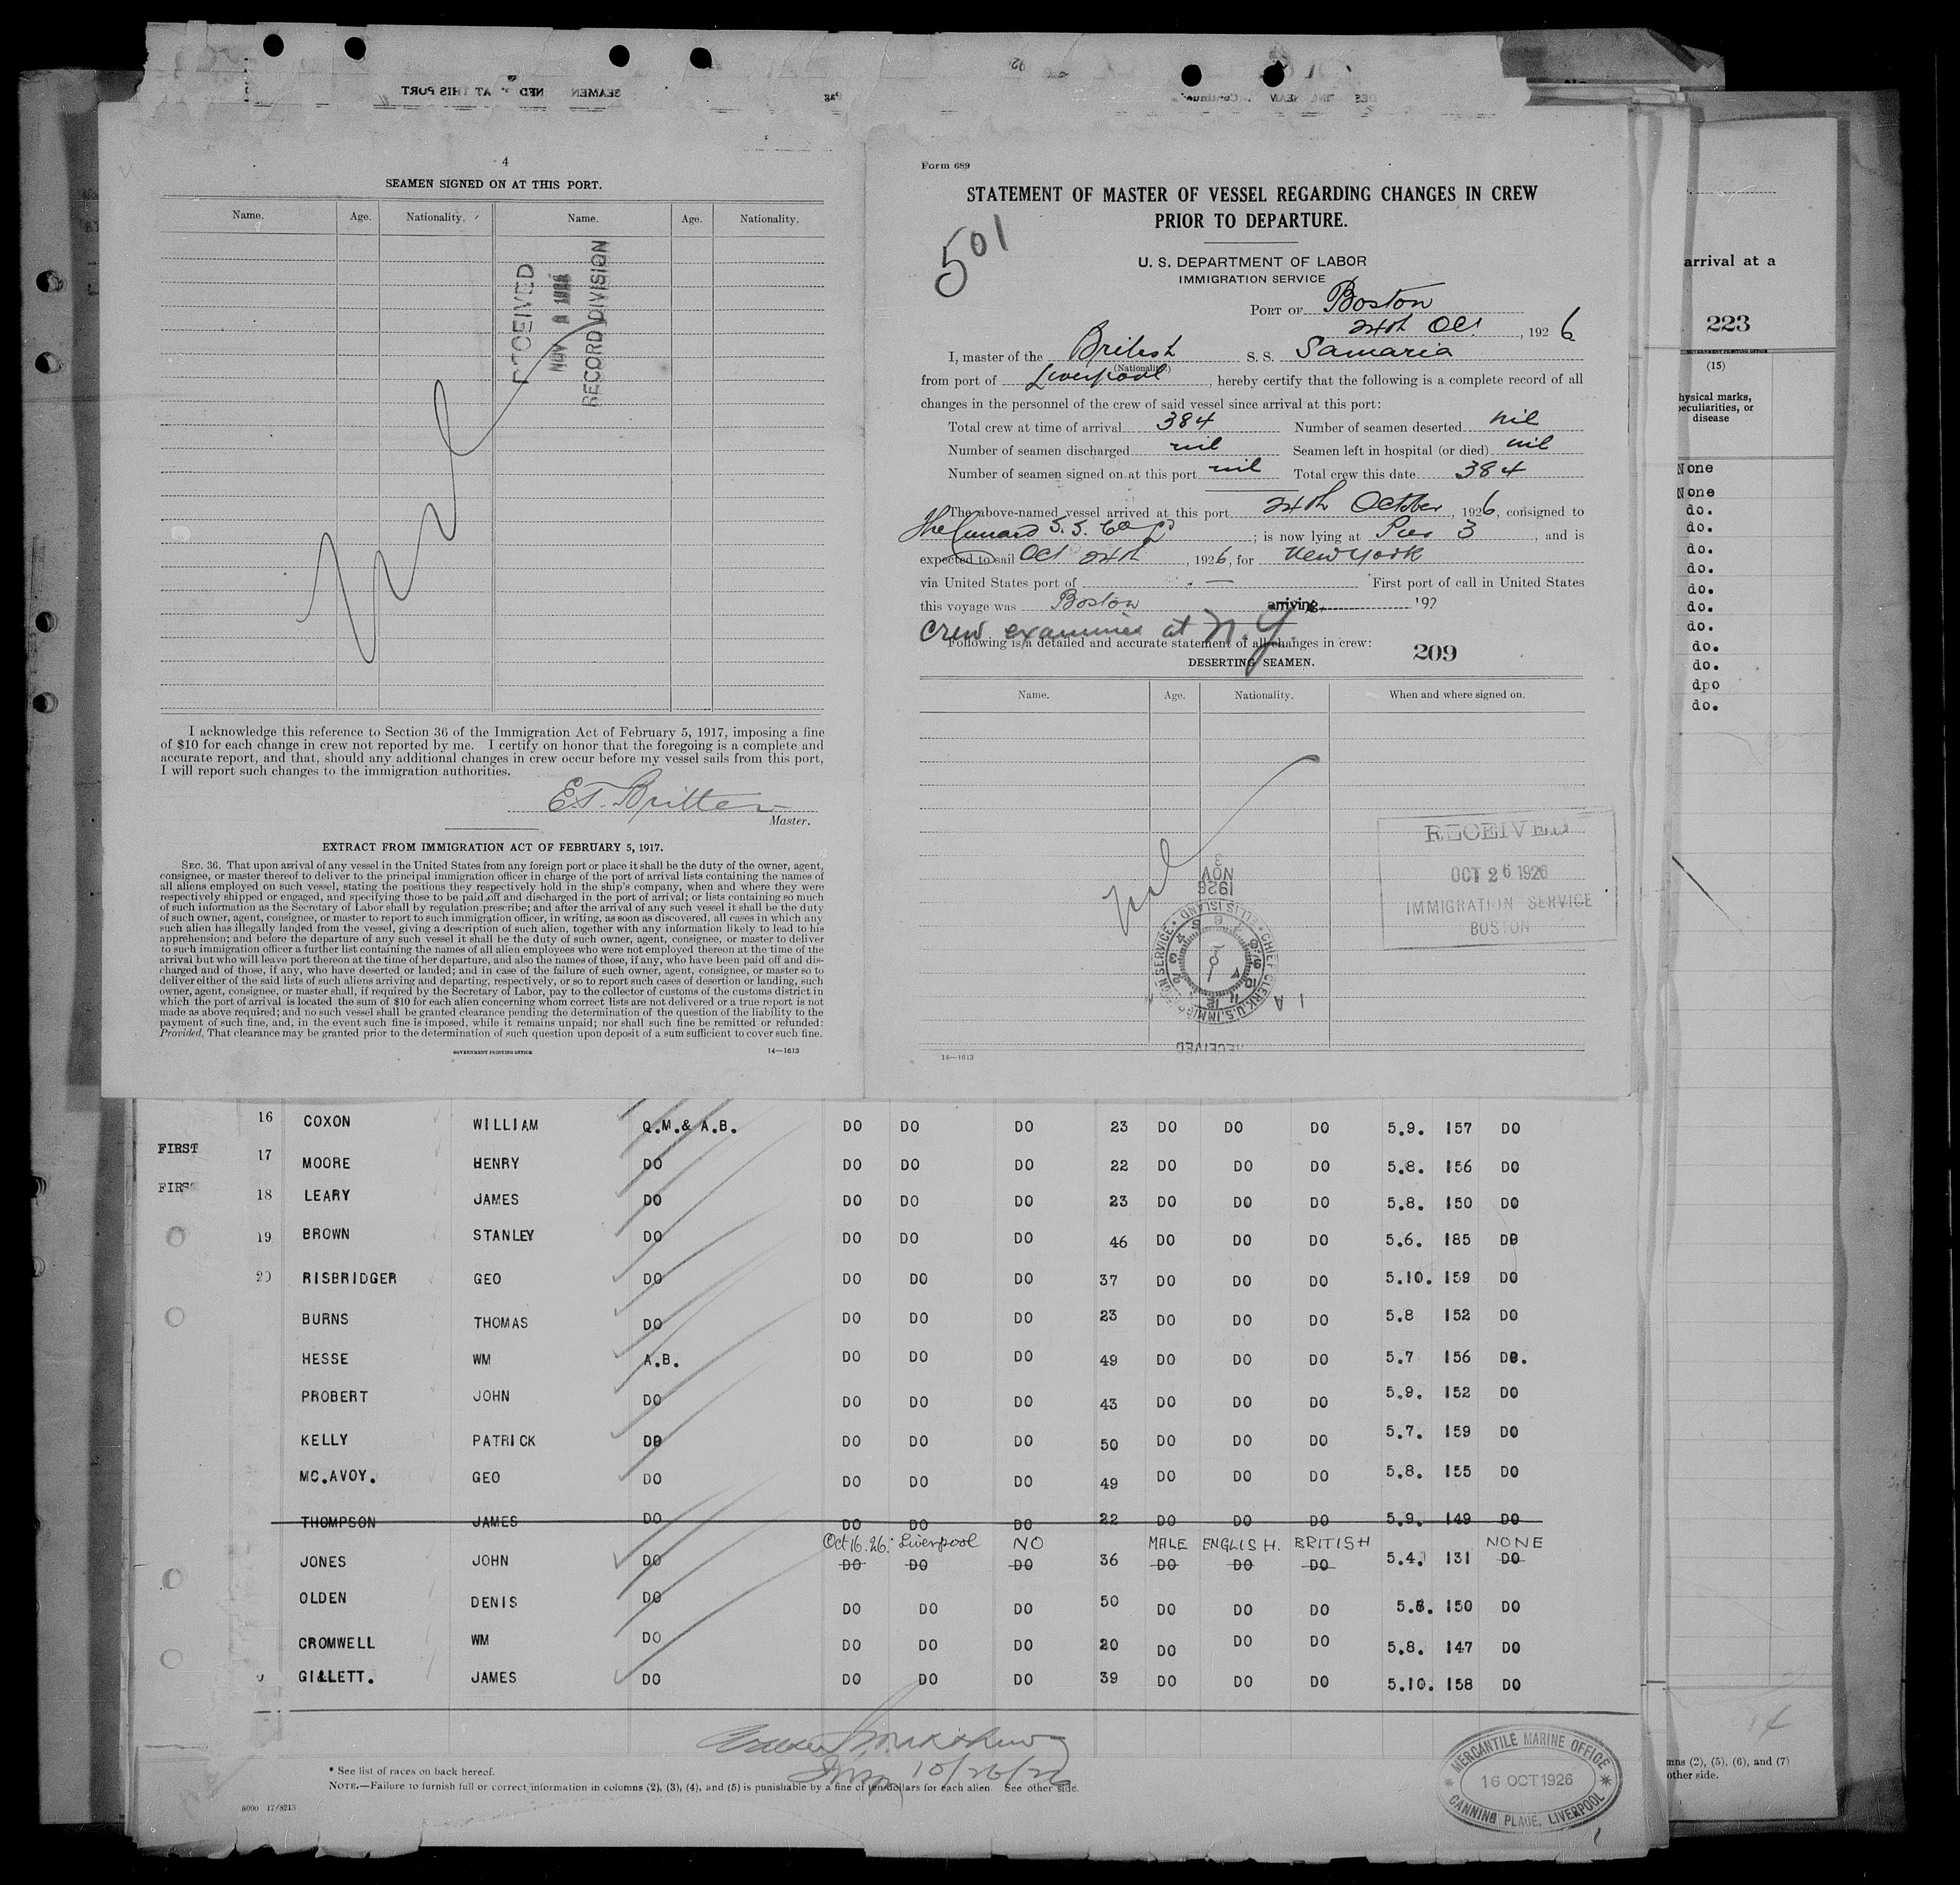 SEAMEN
AT THIS PORT
4
SEAMEN SIGNED ON AT THIS PORT.
Name. Age. Nationality. Name. Age. Nationality.
RECEIVED
NOV 1926
RECORD DIVISION
Nil
I acknowledge this reference to Section 36 of the Immigration Act of February 5, 1917, imposing a fine
of $10 for each change in crew not reported by me. I certify on honor that the foregoing is a complete and
accurate report, and that, should any additional changes in crew occur before my vessel sails from this port,
I will report such changes to the immigration authorities.
E.T. Britten
Master.
EXTRACT FROM IMMIGRATION ACT OF FEBRUARY 5, 1917.
SEC. 36. That upon arrival of any vessel in the United States from any foreign port or place it shall be the duty of the owner, agent,
consignee, or master thereof to deliver to the principal immigration officer in charge of the port of arrival lists containing the names of
all aliens employed on such vessel, stating the positions they respectively hold in the ship's company, when and where they were
respectively shipped or engaged, and specifying those to be paid off and discharged in the port of arrival; or lists containing so much
of such information as the Secretary of Labor shall by regulation prescribe; and after the arrival of any such vessel it shall be the duty
of such owner, agent, consignee, or master to report to such immigration officer, in writing, as soon as discovered, all cases in which any
such alien has illegally landed from the vessel, giving a description of such alien, together with any information likely to lead to his
apprehension; and before the departure of any such vessel it shall be the duty of such owner, agent, consignee, or master to deliver
to such immigration officer a further list containing the names of all alien employees who were not employed thereon at the time of the
arrival but who will leave port thereon at the time of her departure, and also the names of those, if any, who have been paid off and dis-
charged and of those, if any, who have deserted or landed; and in case of the failure of such owner, agent, consignee, or master so to
deliver either of the said lists of such aliens arriving and departing, respectively, or so to report such cases of desertion or landing, such
owner, agent, consignee, or master shall, if required by the Secretary of Labor, pay to the collector of customs of the customs district in
which the port of arrival is located the sum of $10 for each alien concerning whom correct lists are not delivered or a true report is not
made as above required; and no such vessel shall be granted clearance pending the determination of the question of the liability to the
payment of such fine, and, in the event such fine is imposed, while it remains unpaid; nor shall such fine be remitted or refunded:
Provided, That clearance may be granted prior to the determination of such question upon deposit of a sum sufficient to cover such fine.
GOVERNMENT PRINTING OFFICE 14—1613
Form 689
STATEMENT OF MASTER OF VESSEL REGARDING CHANGES IN CREW
PRIOR TO DEPARTURE.
501
U. S. DEPARTMENT OF LABOR
IMMIGRATION SERVICE
PORT OF Boston
24th Oct , 1926
I, master of the British S. S. Samaria
(Nationality)
from port of Liverpool , hereby certify that the following is a complete record of all
changes in the personnel of the crew of said vessel since arrival at this port:
Total crew at time of arrival 384 Number of seamen deserted nil
Number of seamen discharged nil Seamen left in hospital (or died) nil
Number of seamen signed on at this port nil Total crew this date 384
The above-named vessel arrived at this port 24th October , 1926, consigned to
The Cunard S. S. Co Ld ; is now lying at Pier 3 , and is
expected to sail Oct 24th , 1926, for New York
via United States port of — First port of call in United States
this voyage was Boston arriving , 192
Crew examined at N.Y.
Following is a detailed and accurate statement of all changes in crew:
209
DESERTING SEAMEN.
Name. Age. Nationality. When and where signed on.
nil
RECEIVED
OCT 26 1926
IMMIGRATION SERVICE
BOSTON
1926
NOV
3
CHIEF CLERK, U.S. IMMIGRATION SERVICE • ELLIS ISLAND •
RECEIVED
14—1613
arrival at a
223
GOVERNMENT PRINTING OFFICE
(15)
hysical marks,
peculiarities, or
disease
None
None
do.
do.
do.
do.
do.
do.
do.
do.
do.
dpo
do.
16 COXON WILLIAM Q.M.& A.B. DO DO DO 23 DO DO DO 5.9. 157 DO
FIRST 17 MOORE HENRY DO DO DO DO 22 DO DO DO 5.8. 156 DO
FIRST 18 LEARY JAMES DO DO DO DO 23 DO DO DO 5.8. 150 DO
19 BROWN STANLEY DO DO DO DO 46 DO DO DO 5.6. 185 DO
20 RISBRIDGER GEO DO DO DO DO 37 DO DO DO 5.10. 159 DO
BURNS THOMAS DO DO DO DO 23 DO DO DO 5.8 152 DO
HESSE WM A.B. DO DO DO 49 DO DO DO 5.7 156 DO.
PROBERT JOHN DO DO DO DO 43 DO DO DO 5.9. 152 DO
KELLY PATRICK DO DO DO DO 50 DO DO DO 5.7. 159 DO
MC.AVOY. GEO DO DO DO DO 49 DO DO DO 5.8. 155 DO
THOMPSON JAMES DO DO DO DO 22 DO DO DO 5.9. 149 DO
Oct 16.26. Liverpool NO MALE ENGLISH. BRITISH NONE
JONES JOHN DO DO DO DO 36 DO DO DO 5.4. 131 DO
OLDEN DENIS DO DO DO DO 50 DO DO DO 5.8. 150 DO
CROMWELL WM DO DO DO DO 20 DO DO DO 5.8. 147 DO
GILLETT. JAMES DO DO DO DO 39 DO DO DO 5.10. 158 DO
10/26/26
* See list of races on back hereof.
NOTE.—Failure to furnish full or correct information in columns (2), (3), (4), and (5) is punishable by a fine of ten dollars for each alien. See other side.
6000 17/8213
MERCANTILE MARINE OFFICE
16 OCT 1926
CANNING PLACE, LIVERPOOL
14
mns (2), (5), (6), and (7)
other side.